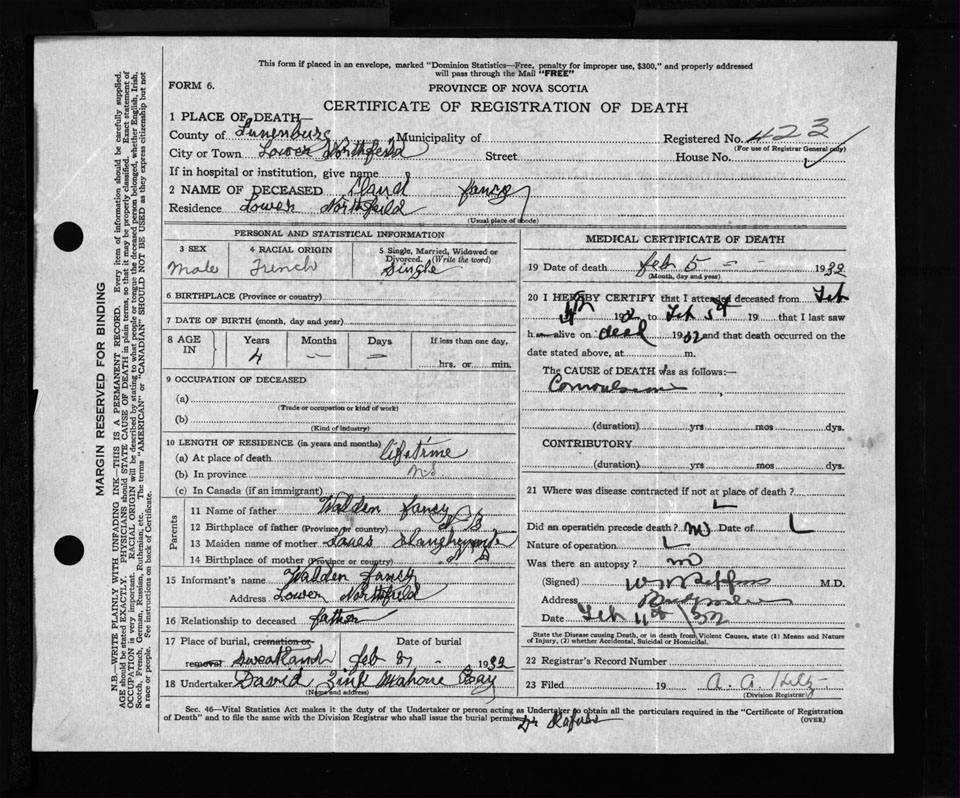 This form if placed in an envelope, marked "Dominion Statistics—Free, penalty for improper use, $300," and properly addressed
will pass through the Mail "FREE"
FORM 6.
PROVINCE OF NOVA SCOTIA
CERTIFICATE OF REGISTRATION OF DEATH
1 PLACE OF DEATH—
County of Lunenburg Municipality of Registered No. 423
(For use of Registrar General only)
City or Town Lower Northfield Street House No.
If in hospital or institution, give name
2 NAME OF DECEASED Claud Fancy
Residence Lower Northfield
(Usual place of abode)
PERSONAL AND STATISTICAL INFORMATION
3 SEX 4 RACIAL ORIGIN 5 Single, Married, Widowed or
Divorced. (Write the word)
Male French Single
6 BIRTHPLACE (Province or country)
7 DATE OF BIRTH (month, day and year)
8 AGE IN Years Months Days If less than one day,
4 — — hrs. or min.
9 OCCUPATION OF DECEASED
(a)
(Trade or occupation or kind of work)
(b)
(Kind of industry)
10 LENGTH OF RESIDENCE (in years and months)
(a) At place of death lifetime
(b) In province N.S.
(c) In Canada (if an immigrant)
Parents
11 Name of father Walden Fancy
12 Birthplace of father (Province or country) N S
13 Maiden name of mother
14 Birthplace of mother (Province or country) N S
15 Informant's name Walden Fancy
Address Lower Northfield
16 Relationship to deceased father
17 Place of burial, cremation or Date of burial
removal Sweetland Feb 8 - 1932
18 Undertaker David Zink Mahone Bay
(Name and address)
MEDICAL CERTIFICATE OF DEATH
19 Date of death Feb 5 - - 1932
(Month, day and year)
20 I HEREBY CERTIFY that I attended deceased from Feb
19 to Feb 5th 19 that I last saw
h alive on dead 1932 and that death occurred on the
date stated above, at m.
The CAUSE of DEATH was as follows:—
Convulsions
(duration) yrs mos dys.
CONTRIBUTORY
(duration) yrs mos dys.
21 Where was disease contracted if not at place of death?
Did an operation precede death? no Date of
Nature of operation
Was there an autopsy? no
(Signed) M.D.
Address
Date Feb 11th 1932
State the Disease causing Death, or in death from Violent Causes, state (1) Means and Nature
of Injury, (2) whether Accidental, Suicidal or Homicidal.
22 Registrar's Record Number
23 Filed 19 A. A. Hiltz
(Division Registrar)
Sec. 46—Vital Statistics Act makes it the duty of the Undertaker or person acting as Undertaker to obtain all the particulars required in the "Certificate of Registration
of Death" and to file the same with the Division Registrar who shall issue the burial permit.
(OVER)
Dr Rafuse
MARGIN RESERVED FOR BINDING
N.B.—WRITE PLAINLY WITH UNFADING INK—THIS IS A PERMANENT RECORD. Every item of information should be carefully supplied.
AGE should be stated EXACTLY. PHYSICIANS should STATE CAUSE OF DEATH in plain terms, so that it may be properly classified. Exact statement of
OCCUPATION is very important. RACIAL ORIGIN will be described by stating to what people or tongue the deceased person belonged, whether English, Irish,
Scotch, French, German, Russian, Ruthenian, etc. The terms "AMERICAN" or "CANADIAN" SHOULD NOT BE USED as they express citizenship but not
a race or people. Fee instructions on back of Certificate.